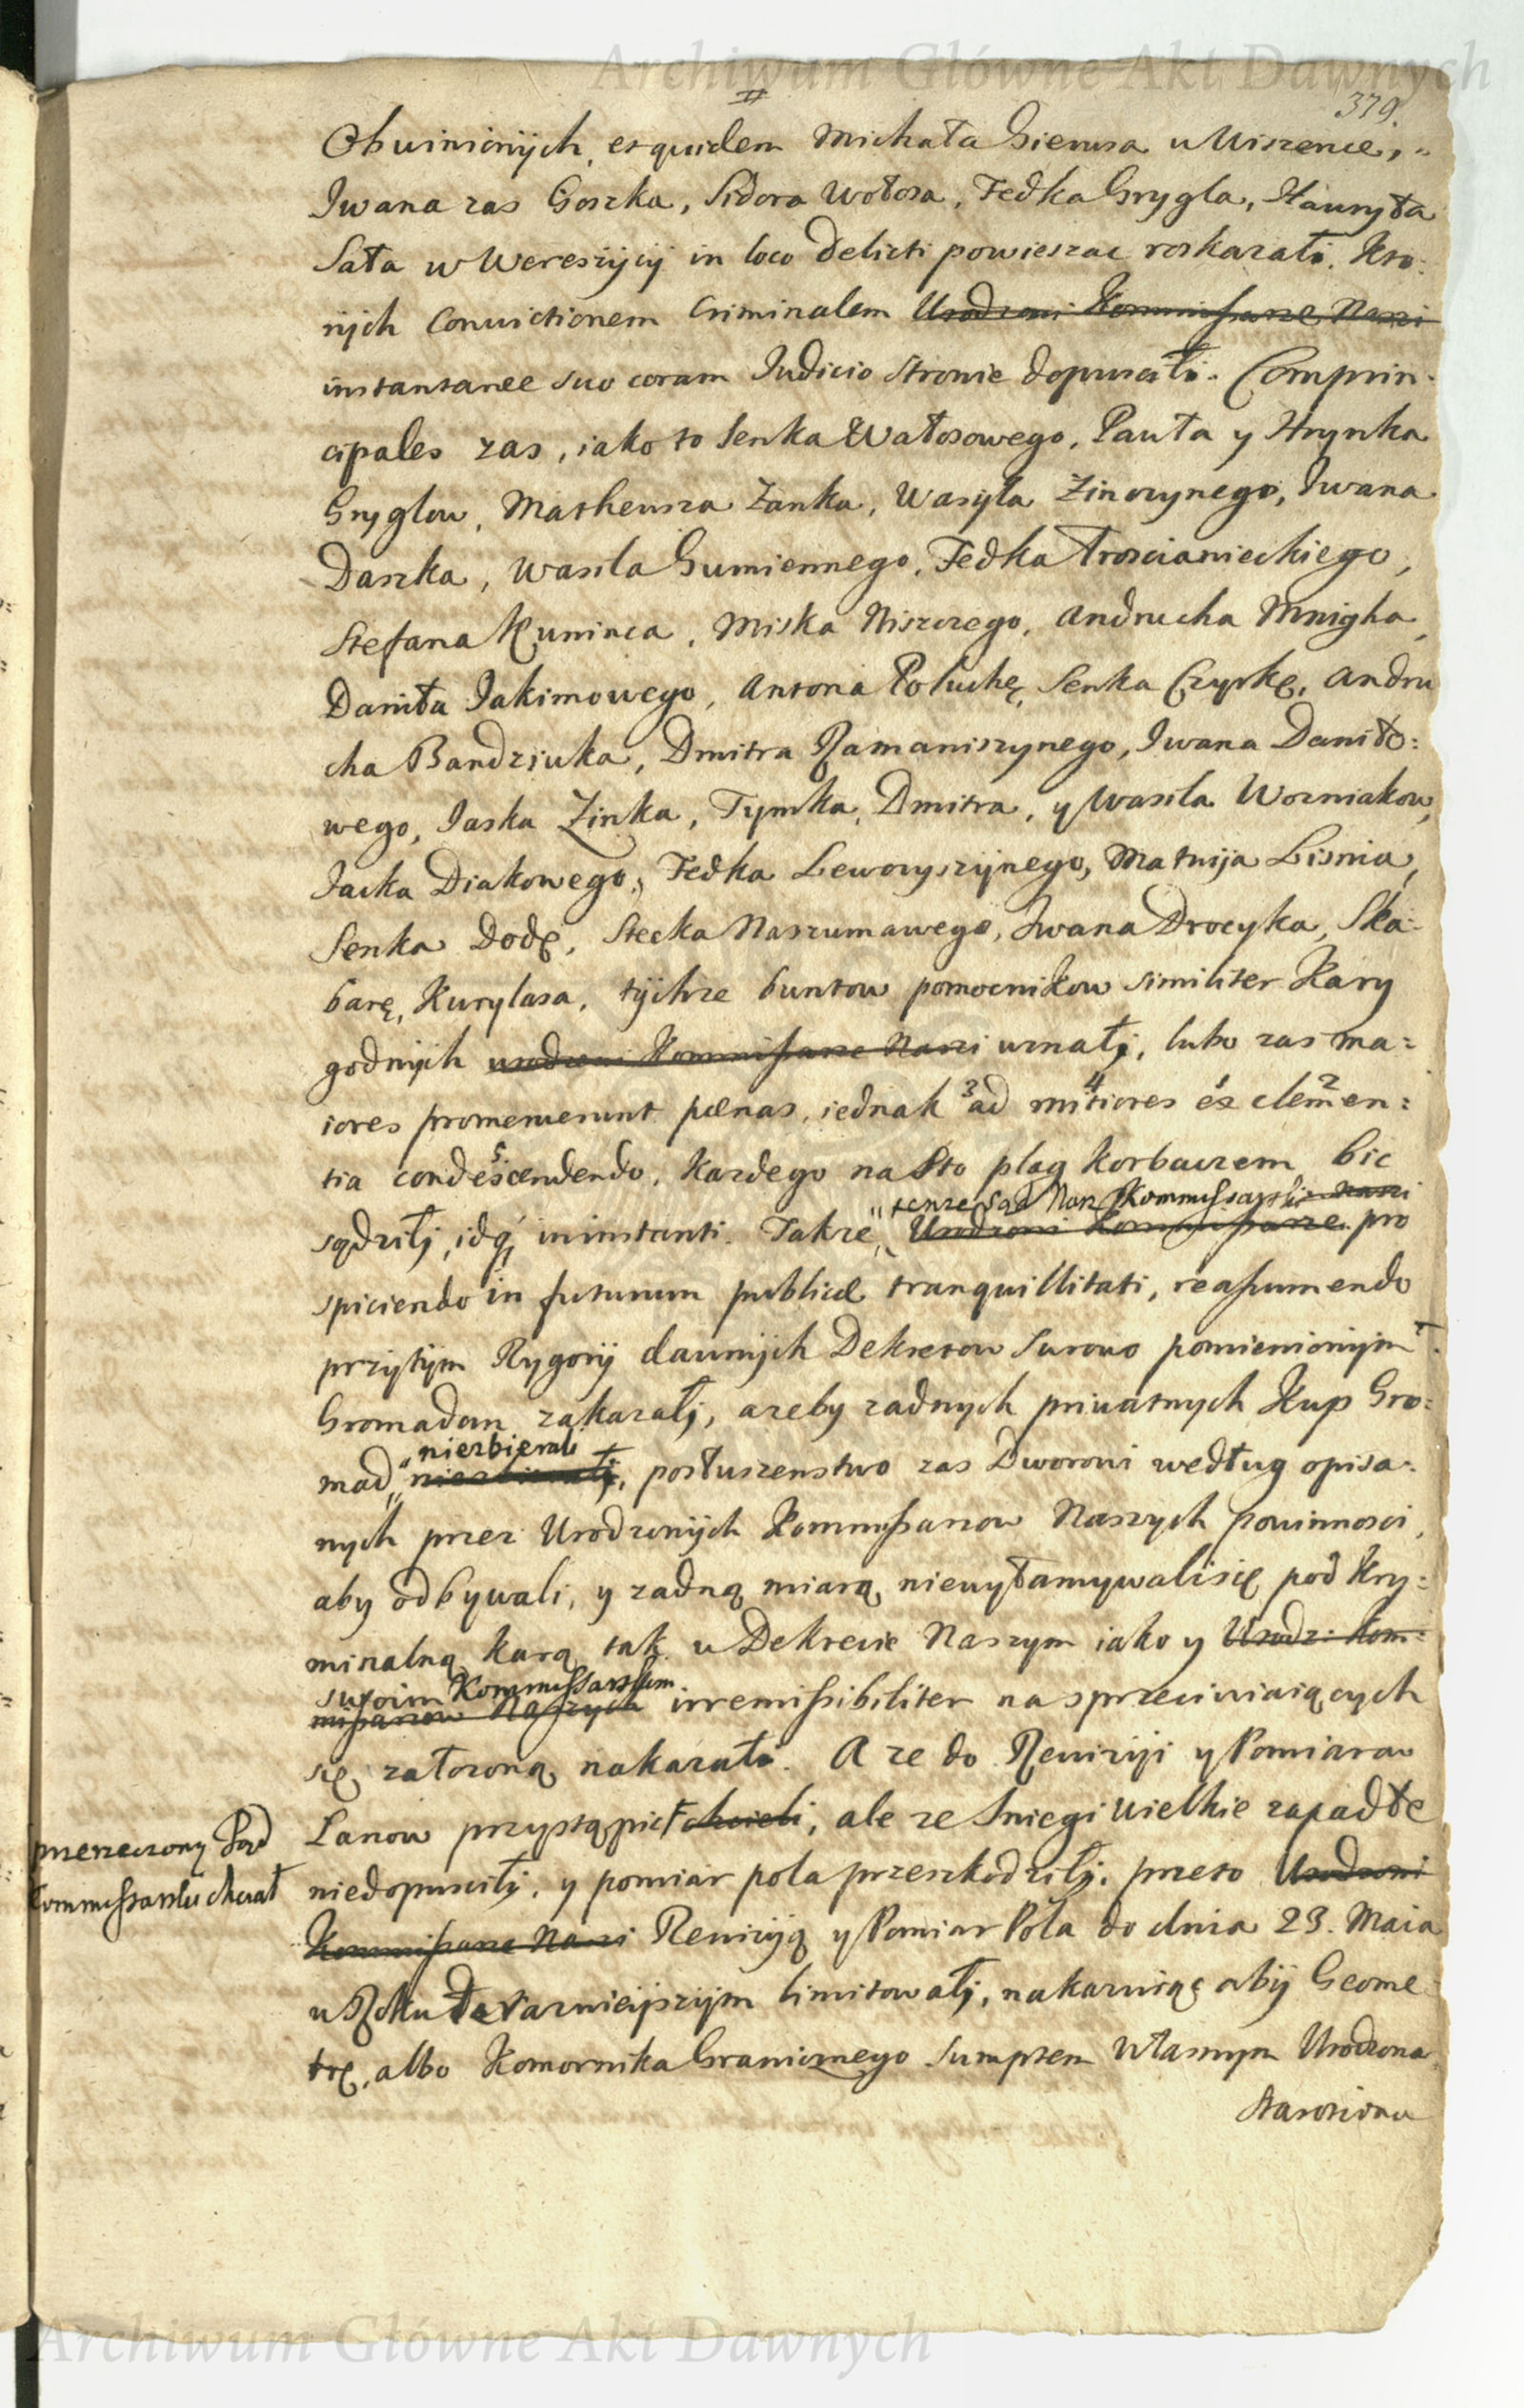 Archiwum Główne Akt Dawnych
II
379.
Obwinionych, et quidem Michała Gierusa w Miszence,
Iwana zas Goszka, Sidora Wołosa, Fedka Grygla, Hawryła
Sała w Wereszycy in loco delicti powieszac roskazał. Kto:
rych Convictionem Criminalem Urodzeni Kommissarze Nasi
instantanee suo coram Iudicio Stronie dopuscili. Comprin:
cipales zas, iako to Senka Wałosowego, Pauła y Hrynka
Gryglow, Matheusza Zanka, Wasyla Zinowynego, Iwana
Daszka, Wasila Gumiennego, Fedka Troscianieckiego,
Stefana Kuninca, Miska Niszczego, Andrucha Mnigha,
Daniła Jakimowego, Antona Poluchę, Senka Czyrkę, Andru
cha Bandziuka, Dmitra Ramaniszynego, Iwana Daniło:
wego, Iaska Zinka, Tymka, Dmitra, y Wasila Wozniakow,
Jacka Diakowego, Fedka Leworyszynego, Matwija Lisnia,
Senka Dodę, Stecka Naszumawego, Iwana Drocyka, Ska:
barę, Kurylasa, tychze buntow pomocnikow similiter Kary
godnych urodzeni Kommissarze Nasi uznali, lubo zas ma:
iores promeruerunt pœnas, iednak 3 ad 4 mitiores 1 ex 2 clemen:
tia 5 condescendendo, kazdego na sto plag korbaczem bic
sądzili, idq; in instanti. Takze
tenze Sąd Nasz Kommissarski Nasi
Urodzeni Kommissarze pro
spiciendo in futurum publicæ tranquillitati, reassumendo
przytym Rygory dawnych Dekretow surowo pomienionym
Gromadom zakazał, azeby zadnych priwatnych Kup Gro:
niezbierali
mad niezbierali, posłuszenstwo zas Dworowi według opisa:
nych przez Urodzonych Kommissarzow Naszych powinnosci,
aby odbywali, y zadną miarą niewyłamywali się pod Kry:
minalną karą tak w Dekrecie Naszym iako y Urodz: Kom:
swoim Kommissarskim
missarzow Naszych irremissibiliter na sprzeciwiaiących
się załozoną nakazał. A ze do Rewizyi y Pomiaru
Lanow przystąpic chcieli, ale ze sniegi wielkie zapadłe
przerzeczony Sąd
Kommissarski chciał
niedopuscily, y pomiar pola przeszkodzily, przeto Urodzeni
Kommissarze Nasi Rewizyą y Pomiar Pola do dnia 23. Maia
w Roku teraznieyszym limitował, nakazuiąc aby Geome:
trę, albo Komornika Granicznego sumptem własnym Urodzona
Starościna
Archiwum Główne Akt Dawnych